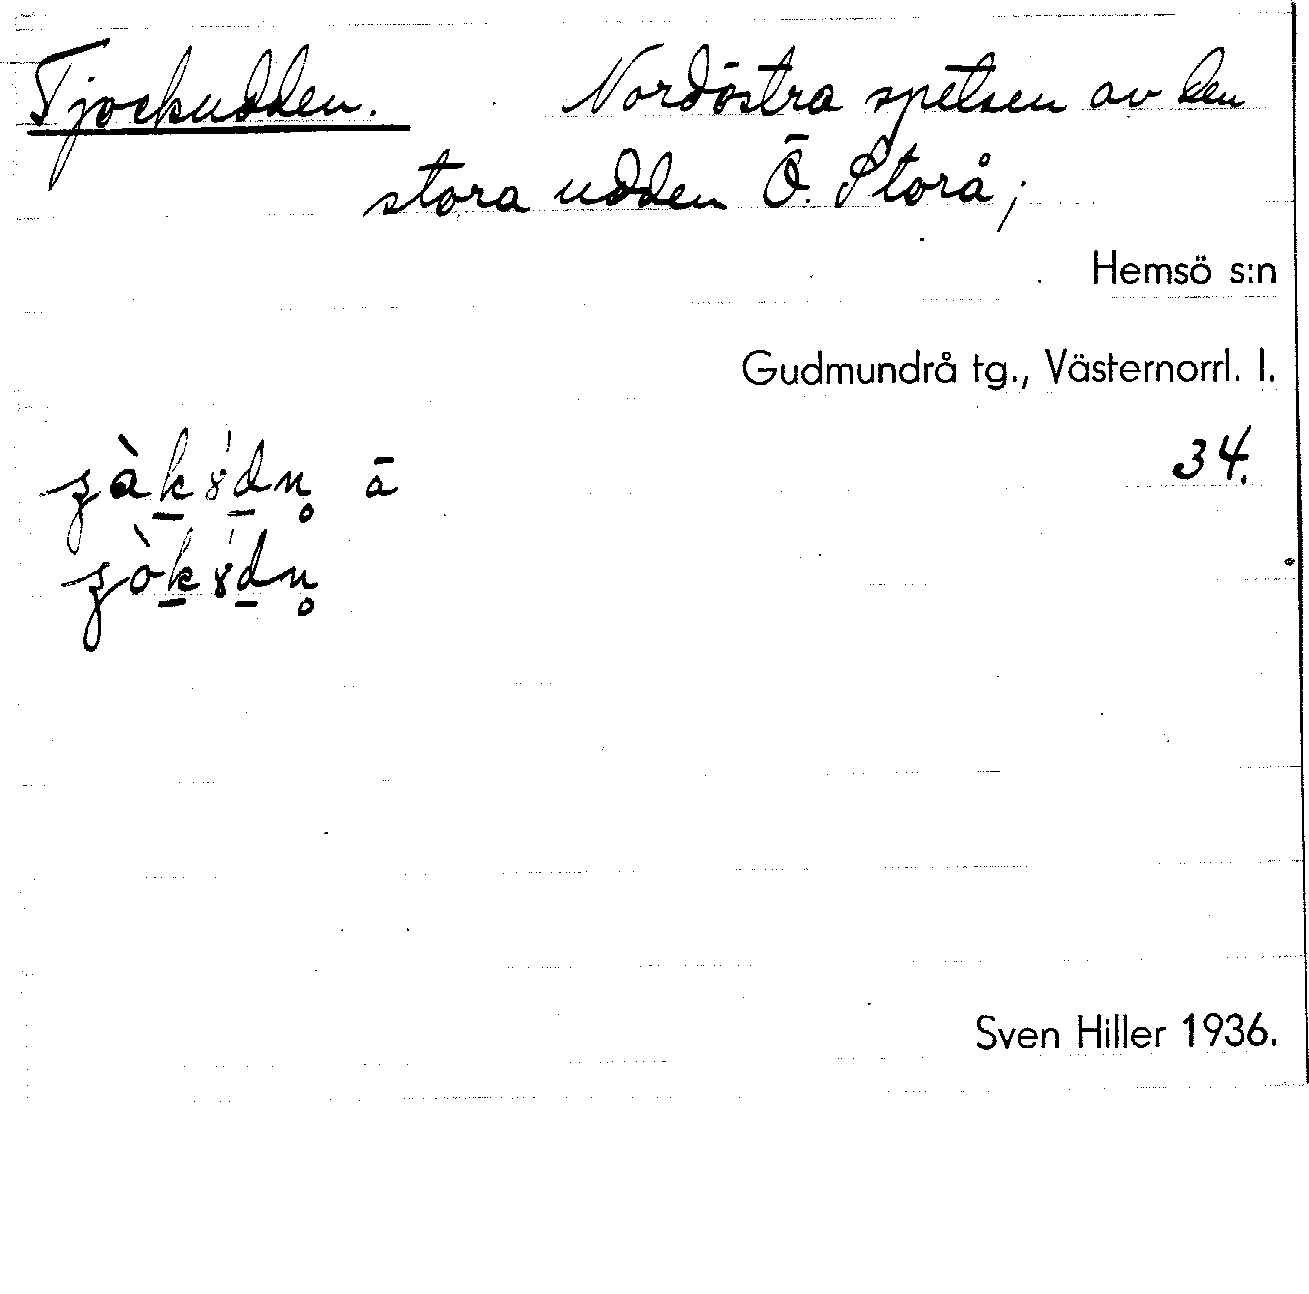 Tjockudden. Nordöstra spetsen av den
stora udden Ö. Storå;
Hemsö s:n
Gudmundrå tg., Västernorrl. l.
34.
Sven Hiller 1936.